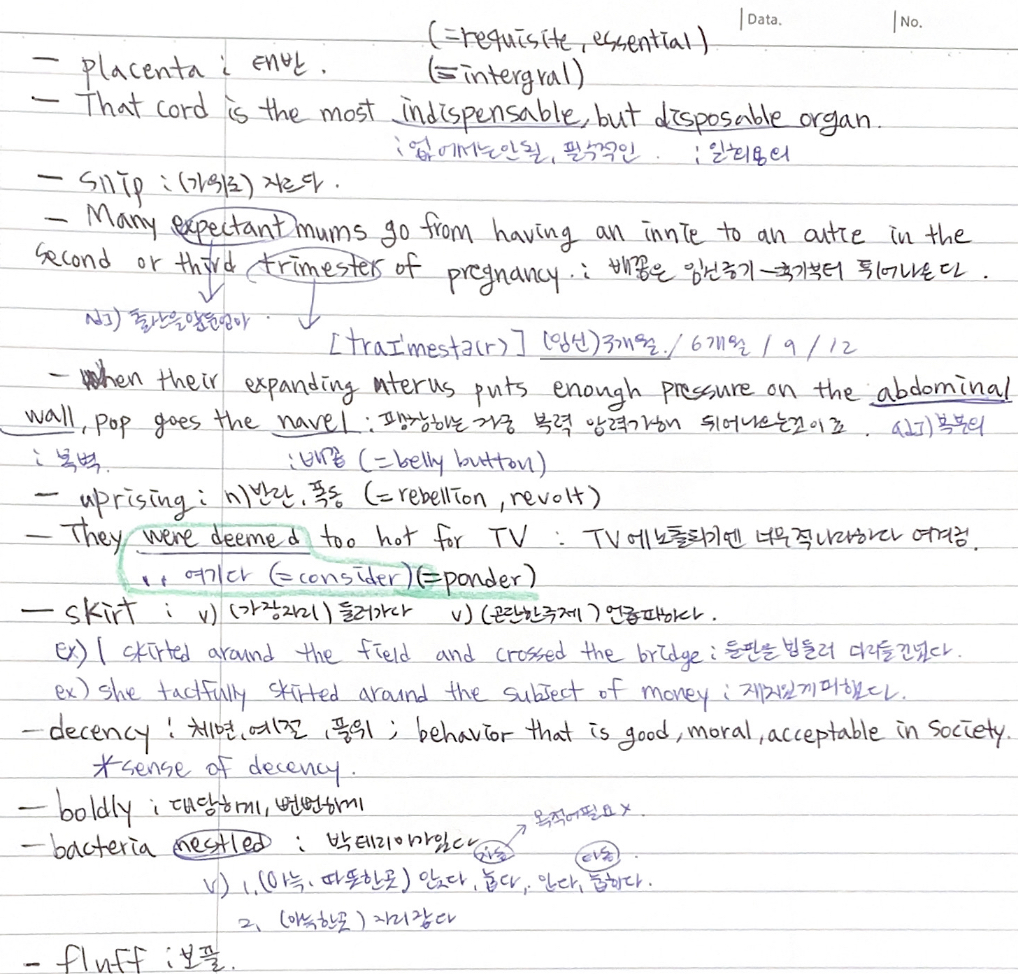 Data. No.
(=requisite, essential)
- placenta : 태반. (=intergral)
- That cord is the most indispensable, but disposable organ.
: 없에서는안될, 필수적인. : 일회용의
- snip : (가위로) 자르다.
- Many expectant mums go from having an innie to an outie in the
second or third trimester of pregnancy. : 배꼽은 임신중기-후기부터 튀어나온다.
adj) 출산을앞둔엄마.
[traɪmestə(r)] (임신)3개월. / 6개월 / 9 / 12
- When their expanding uterus puts enough pressure on the abdominal
wall, pop goes the navel : 팽창하는 자궁 복력 압력가해 튀어나오는것이죠. adj)복부의
: 복벽. : 배꼽 (=belly button)
- uprising : n)반란, 폭동 (=rebellion, revolt)
- They were deemed too hot for TV : TV에 노출되기엔 너무 적나라하다 여겨짐.
여기다 (=consider)(=ponder)
- skirt : v) (가장자리) 둘러가다 v) (곤란한주제) 언급피하다.
ex) I skirted around the field and crossed the bridge : 들판을 빙둘러 다리를건넜다.
ex) she tactfully skirted around the subject of money : 재치있게피했다.
- decency : 체면, 예절, 품위 ; behavior that is good, moral, acceptable in society.
*sense of decency.
- boldly : 대담하게, 뻔뻔하게
목적어필요x.
- bacteria nestled : 박테리아가있다 자동 타동
v) 1. (아늑, 따뜻한곳) 앉다, 눕다, 안다, 눕히다.
2. (아늑한곳) 자리잡다
- fluff : 보풀.